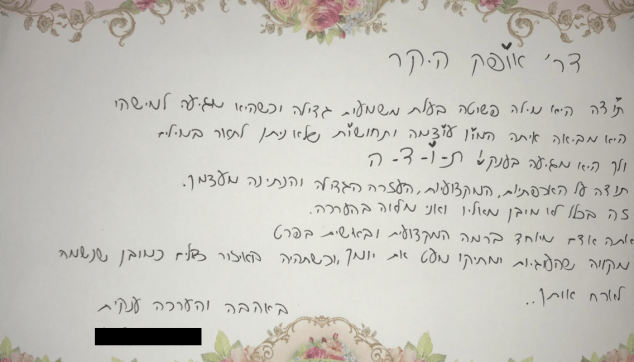 דר' אופק היקר
תודה היא מילה פשוטה בעלת משמעות גדולה וכשהיא מגיעה למישהו
היא מביאה איתה המון עוצמה ותחושות שלא ניתן לתאר במילים
ולך היא מגיעה בענק! ת-ו-ד-ה
תודה על האכפתיות, המקצועיות, העזרה הגדולה והנתינה מעצמך.
זה בכלל לא מובן מאליו ואני מלאה בהערכה.
אתה אדם מיוחד ברמה המקצועית ובאישית בפרט
מקווה שהעוגיות ימתיקו מעט את יומך, וכשתהיה באיזור כמובן שנשמח
לארח אותך..
באהבה והערכה ענקית